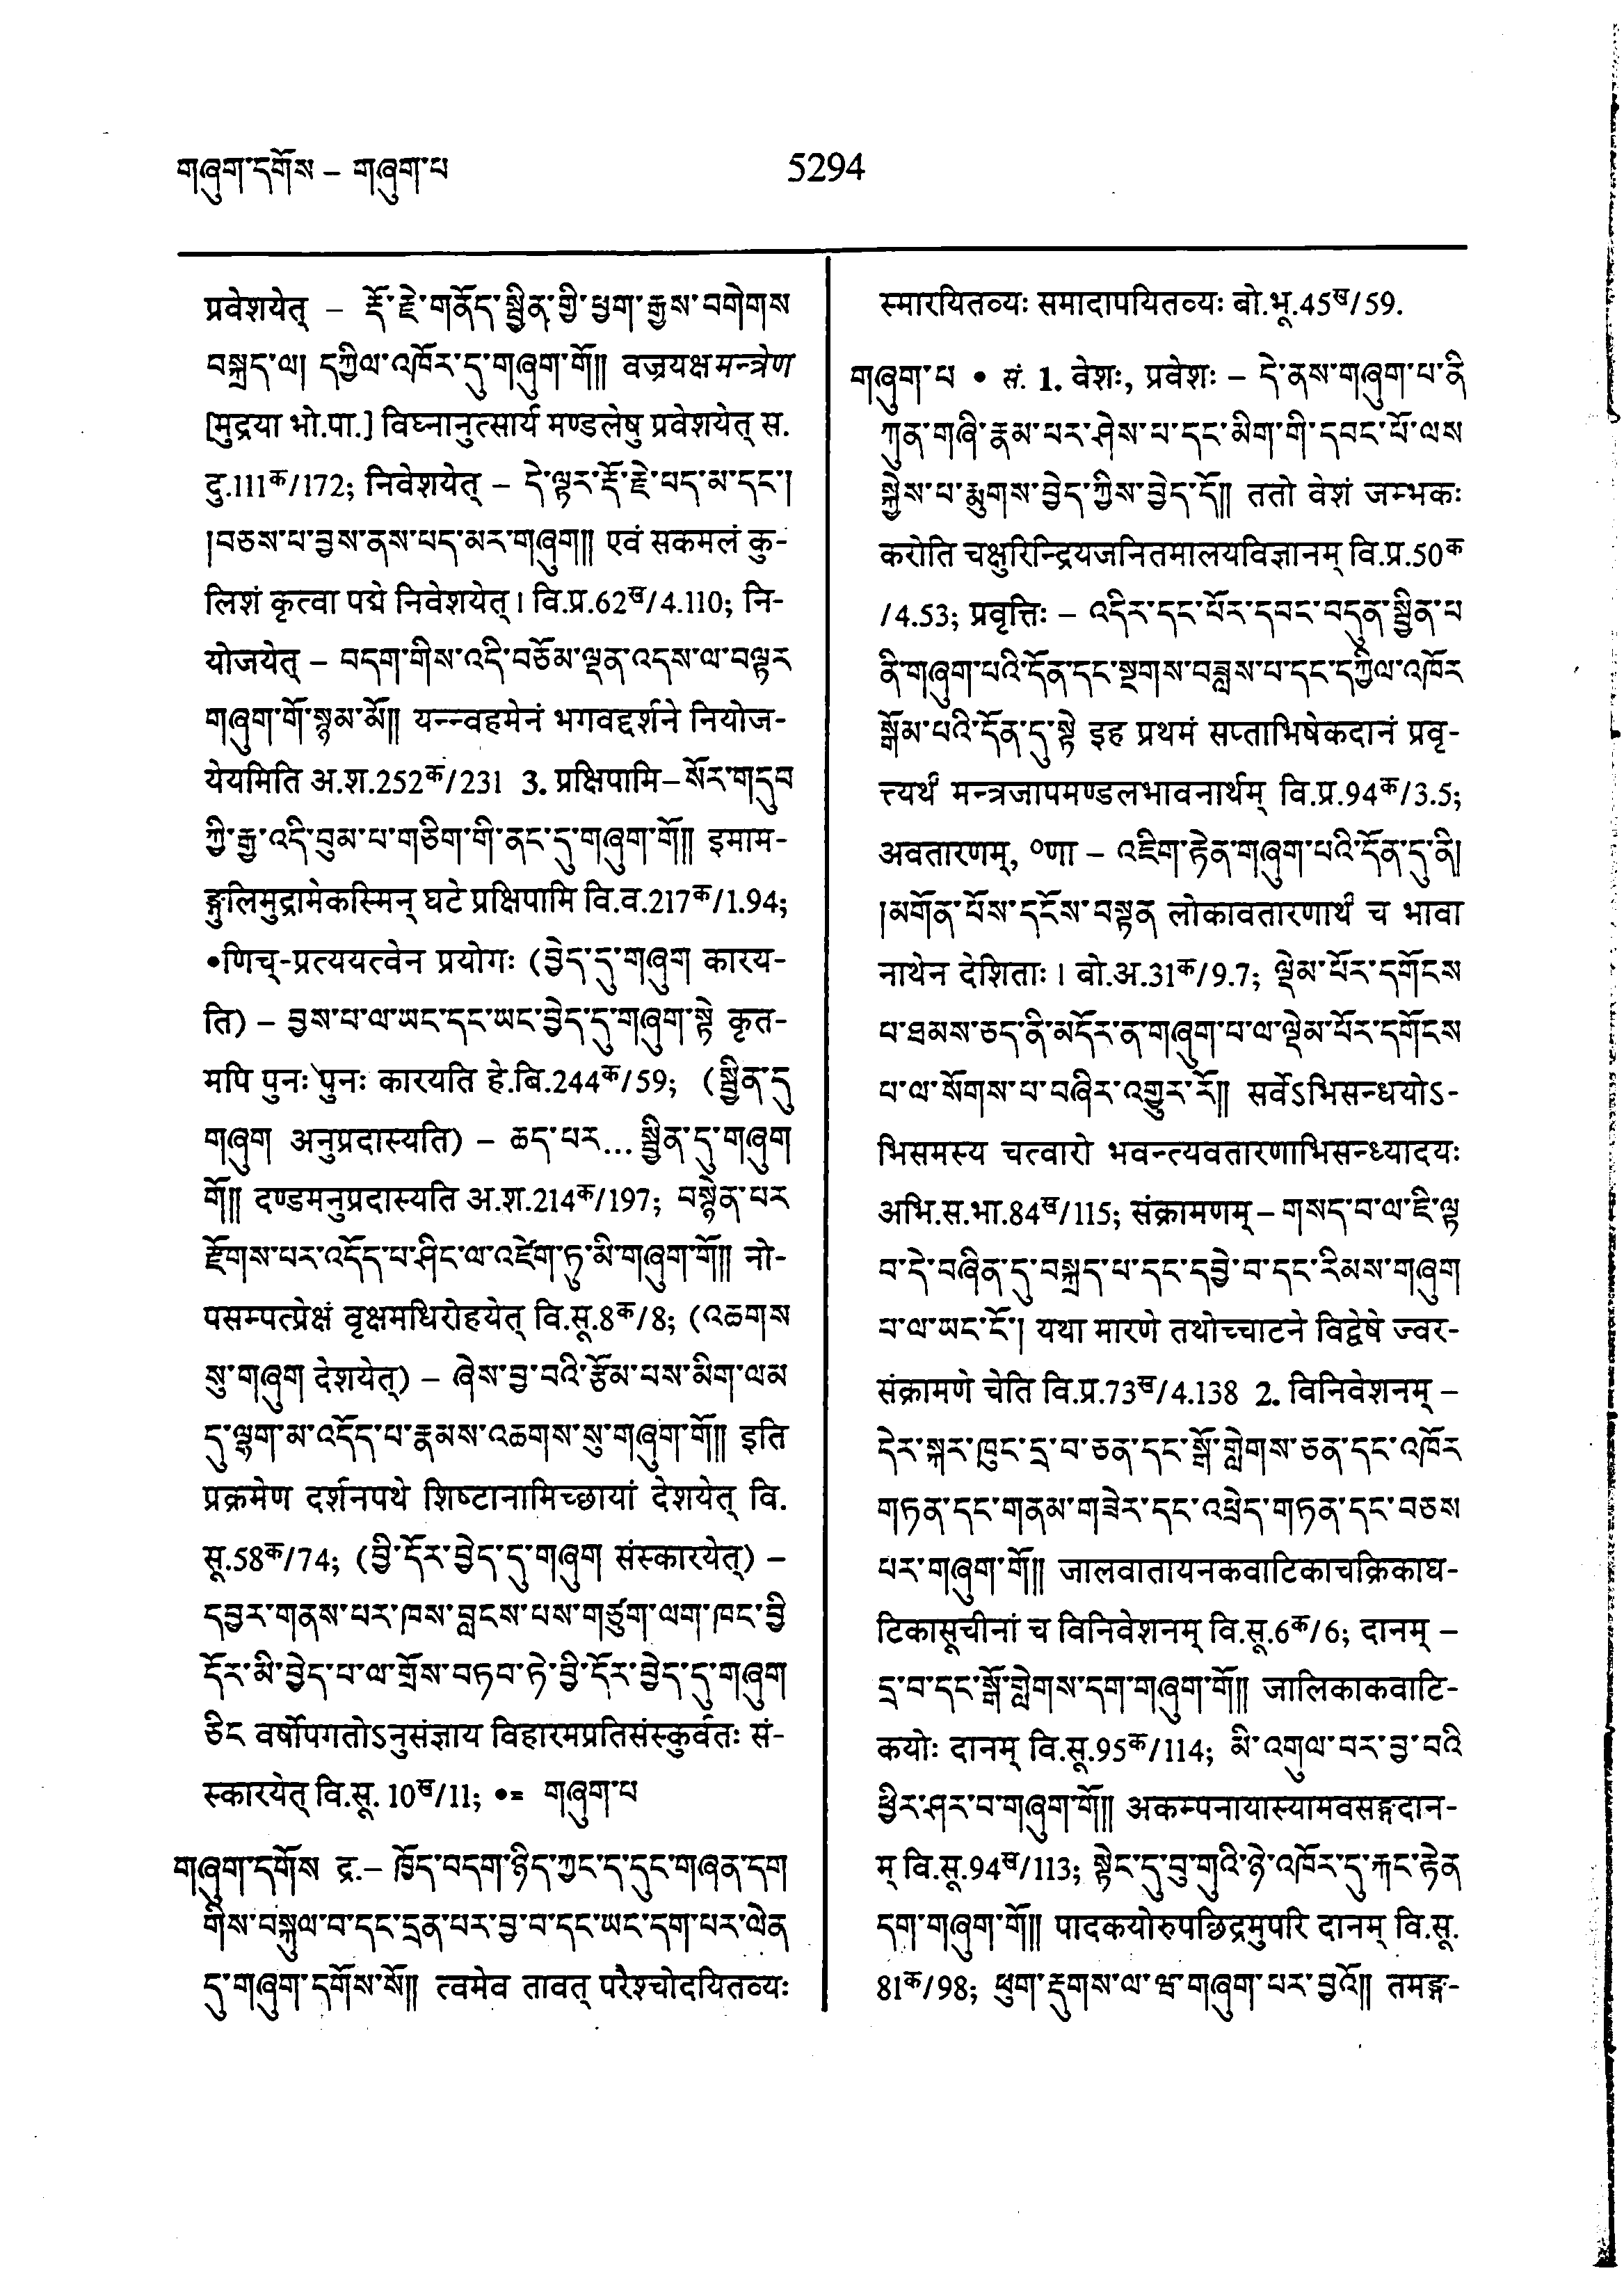 གཞུག་དགོས – གཞུག་པ
5294
प्रवेशयेत् – རྡོ་རྗེ་གནོད་སྦྱིན་གྱི་ཕྱག་རྒྱས་བགེགས
བསྐྲད་ལ། དཀྱིལ་འཁོར་དུ་གཞུག་གོ།། वज्रयक्षमन्त्रेण
[मुद्रया भो.पा.] विघ्नानुत्सार्य मण्डलेषु प्रवेशयेत् स.
दु.111क/172; निवेशयेत् – དེ་ལྟར་རྡོ་རྗེ་པད་མ་དང་།
།བཅས་པ་བྱས་ནས་པད་མར་གཞུག།། एवं सकमलं कु-
लिशं कृत्वा पद्मे निवेशयेत् । वि.प्र.62ख/4.110; नि-
योजयेत् – བདག་གིས་འདི་བཅོམ་ལྡན་འདས་ལ་བལྟར
གཞུག་གོ་སྙམ་མོ།། यन्न्वहमेनं भगवद्दर्शने नियोज-
येयमिति अ.श.252क/231 3. प्रक्षिपामि – སོར་གདུབ
ཀྱི་རྒྱ་འདི་བུམ་པ་གཅིག་གི་ནང་དུ་གཞུག་གོ།། इमाम-
ङ्गुलिमुद्रामेकस्मिन् घटे प्रक्षिपामि वि.व.217क/1.94;
•णिच्-प्रत्ययत्वेन प्रयोगः (བྱེད་དུ་གཞུག कारय-
ति) – བྱས་པ་ལ་ཡང་དང་ཡང་བྱེད་དུ་གཞུག་སྟེ कृत-
मपि पुनः पुनः कारयति हे.बि.244क/59; (སྦྱིན་དུ
གཞུག अनुप्रदास्यति) – ཆད་པར... སྦྱིན་དུ་གཞུག
གོ།། दण्डमनुप्रदास्यति अ.श.214क/197; བསྙེན་པར
རྫོགས་པར་འདོད་པ་ཤིང་ལ་འཛེག་ཏུ་མི་གཞུག་གོ།། नो-
पसम्पत्प्रेक्षं वृक्षमधिरोहयेत् वि.सू.8क/8; (འཆགས
སུ་གཞུག देशयेत्) – ཞེས་བྱ་བའི་རྩོམ་པས་མིག་ལམ
དུ་ལྷག་མ་འདོད་པ་རྣམས་འཆགས་སུ་གཞུག་གོ།། इति
प्रक्रमेण दर्शनपथे शिष्टानामिच्छायां देशयेत् वि.
सू.58क/74; (བྱི་དོར་བྱེད་དུ་གཞུག संस्कारयेत्) –
དབྱར་གནས་པར་ཁས་བླངས་པས་གཙུག་ལག་ཁང་བྱི
དོར་མི་བྱེད་པ་ལ་གྲོས་བཏབ་ཏེ་བྱི་དོར་བྱེད་དུ་གཞུག
ཅིང वर्षोपगतोऽनुसंज्ञाय विहारमप्रतिसंस्कुर्वतः सं-
स्कारयेत् वि.सू. 10ख/11; •= གཞུག་པ
གཞུག་དགོས द्र.– ཁྱོད་བདག་ཉིད་ཀྱང་ད་དུང་གཞན་དག
གིས་བསྐུལ་བ་དང་དྲན་པར་བྱ་བ་དང་ཡང་དག་པར་ལེན
དུ་གཞུག་དགོས་སོ།། त्वमेव तावत् परैश्चोदयितव्यः
स्मारयितव्यः समादापयितव्यः बो.भू.45ख/59.
གཞུག་པ • सं. 1. वेशः, प्रवेशः – དེ་ནས་གཞུག་པ་ནི
ཀུན་གཞི་རྣམ་པར་ཤེས་པ་དང་མིག་གི་དབང་པོ་ལས
སྐྱེས་པ་རྨུགས་བྱེད་ཀྱིས་བྱེད་དོ།། ततो वेशं जम्भकः
करोति चक्षुरिन्द्रियजनितमालयविज्ञानम् वि.प्र.50क
/4.53; प्रवृत्तिः – འདིར་དང་པོར་དབང་བདུན་སྦྱིན་པ
ནི་གཞུག་པའི་དོན་དང་སྔགས་བཟླས་པ་དང་དཀྱིལ་འཁོར
སྒོམ་པའི་དོན་དུ་སྟེ इह प्रथमं सप्ताभिषेकदानं प्रवृ-
त्त्यर्थं मन्त्रजापमण्डलभावनार्थम् वि.प्र.94क/3.5;
अवतारणम्, ०णा – འཇིག་རྟེན་གཞུག་པའི་དོན་དུ་ནི།
།མགོན་པོས་དངོས་བསྟན लोकावतारणार्थं च भावा
नाथेन देशिताः । बो.अ.31क/9.7; ལྡེམ་པོར་དགོངས
པ་ཐམས་ཅད་ནི་མདོར་ན་གཞུག་པ་ལ་ལྡེམ་པོར་དགོངས
པ་ལ་སོགས་པ་བཞིར་འགྱུར་རོ།། सर्वेऽभिसन्धयोऽ-
भिसमस्य चत्वारो भवन्त्यवतारणाभिसन्ध्यादयः
अभि.स.भा.84ख/115; संक्रामणम् – གསད་པ་ལ་ཇི་ལྟ
བ་དེ་བཞིན་དུ་བསྐྲད་པ་དང་དབྱེ་བ་དང་རིམས་གཞུག
པ་ལ་ཡང་ངོ་། यथा मारणे तथोच्चाटने विद्वेषे ज्वर-
संक्रामणे चेति वि.प्र.73ख/4.138 2. विनिवेशनम् –
དེར་སྐར་ཁུང་དྲ་བ་ཅན་དང་སྒོ་གླེགས་ཅན་དང་འཁོར
གཏན་དང་གནམ་གཟེར་དང་འཕྲེད་གཏན་དང་བཅས
པར་གཞུག་གོ།། जालवातायनकवाटिकाचक्रिकाघ-
टिकासूचीनां च विनिवेशनम् वि.सू.6क/6; दानम् –
དྲ་བ་དང་སྒོ་གླེགས་དག་གཞུག་གོ།། जालिकाकवाटि-
कयोः दानम् वि.सू.95क/114; མི་འགུལ་བར་བྱ་བའི
ཕྱིར་ཤར་བ་གཞུག་གོ།། अकम्पनायास्यामवसङ्गदान-
म् वि.सू.94ख/113; སྟེང་དུ་བུ་གུའི་ཉེ་འཁོར་དུ་རྐང་རྟེན
དག་གཞུག་གོ།། पादकयोरुपछिद्रमुपरि दानम् वि.सू.
81क/98; ཕུག་རྡུགས་ལ་ཕྲ་གཞུག་པར་བྱའོ།། तमङ्ग-